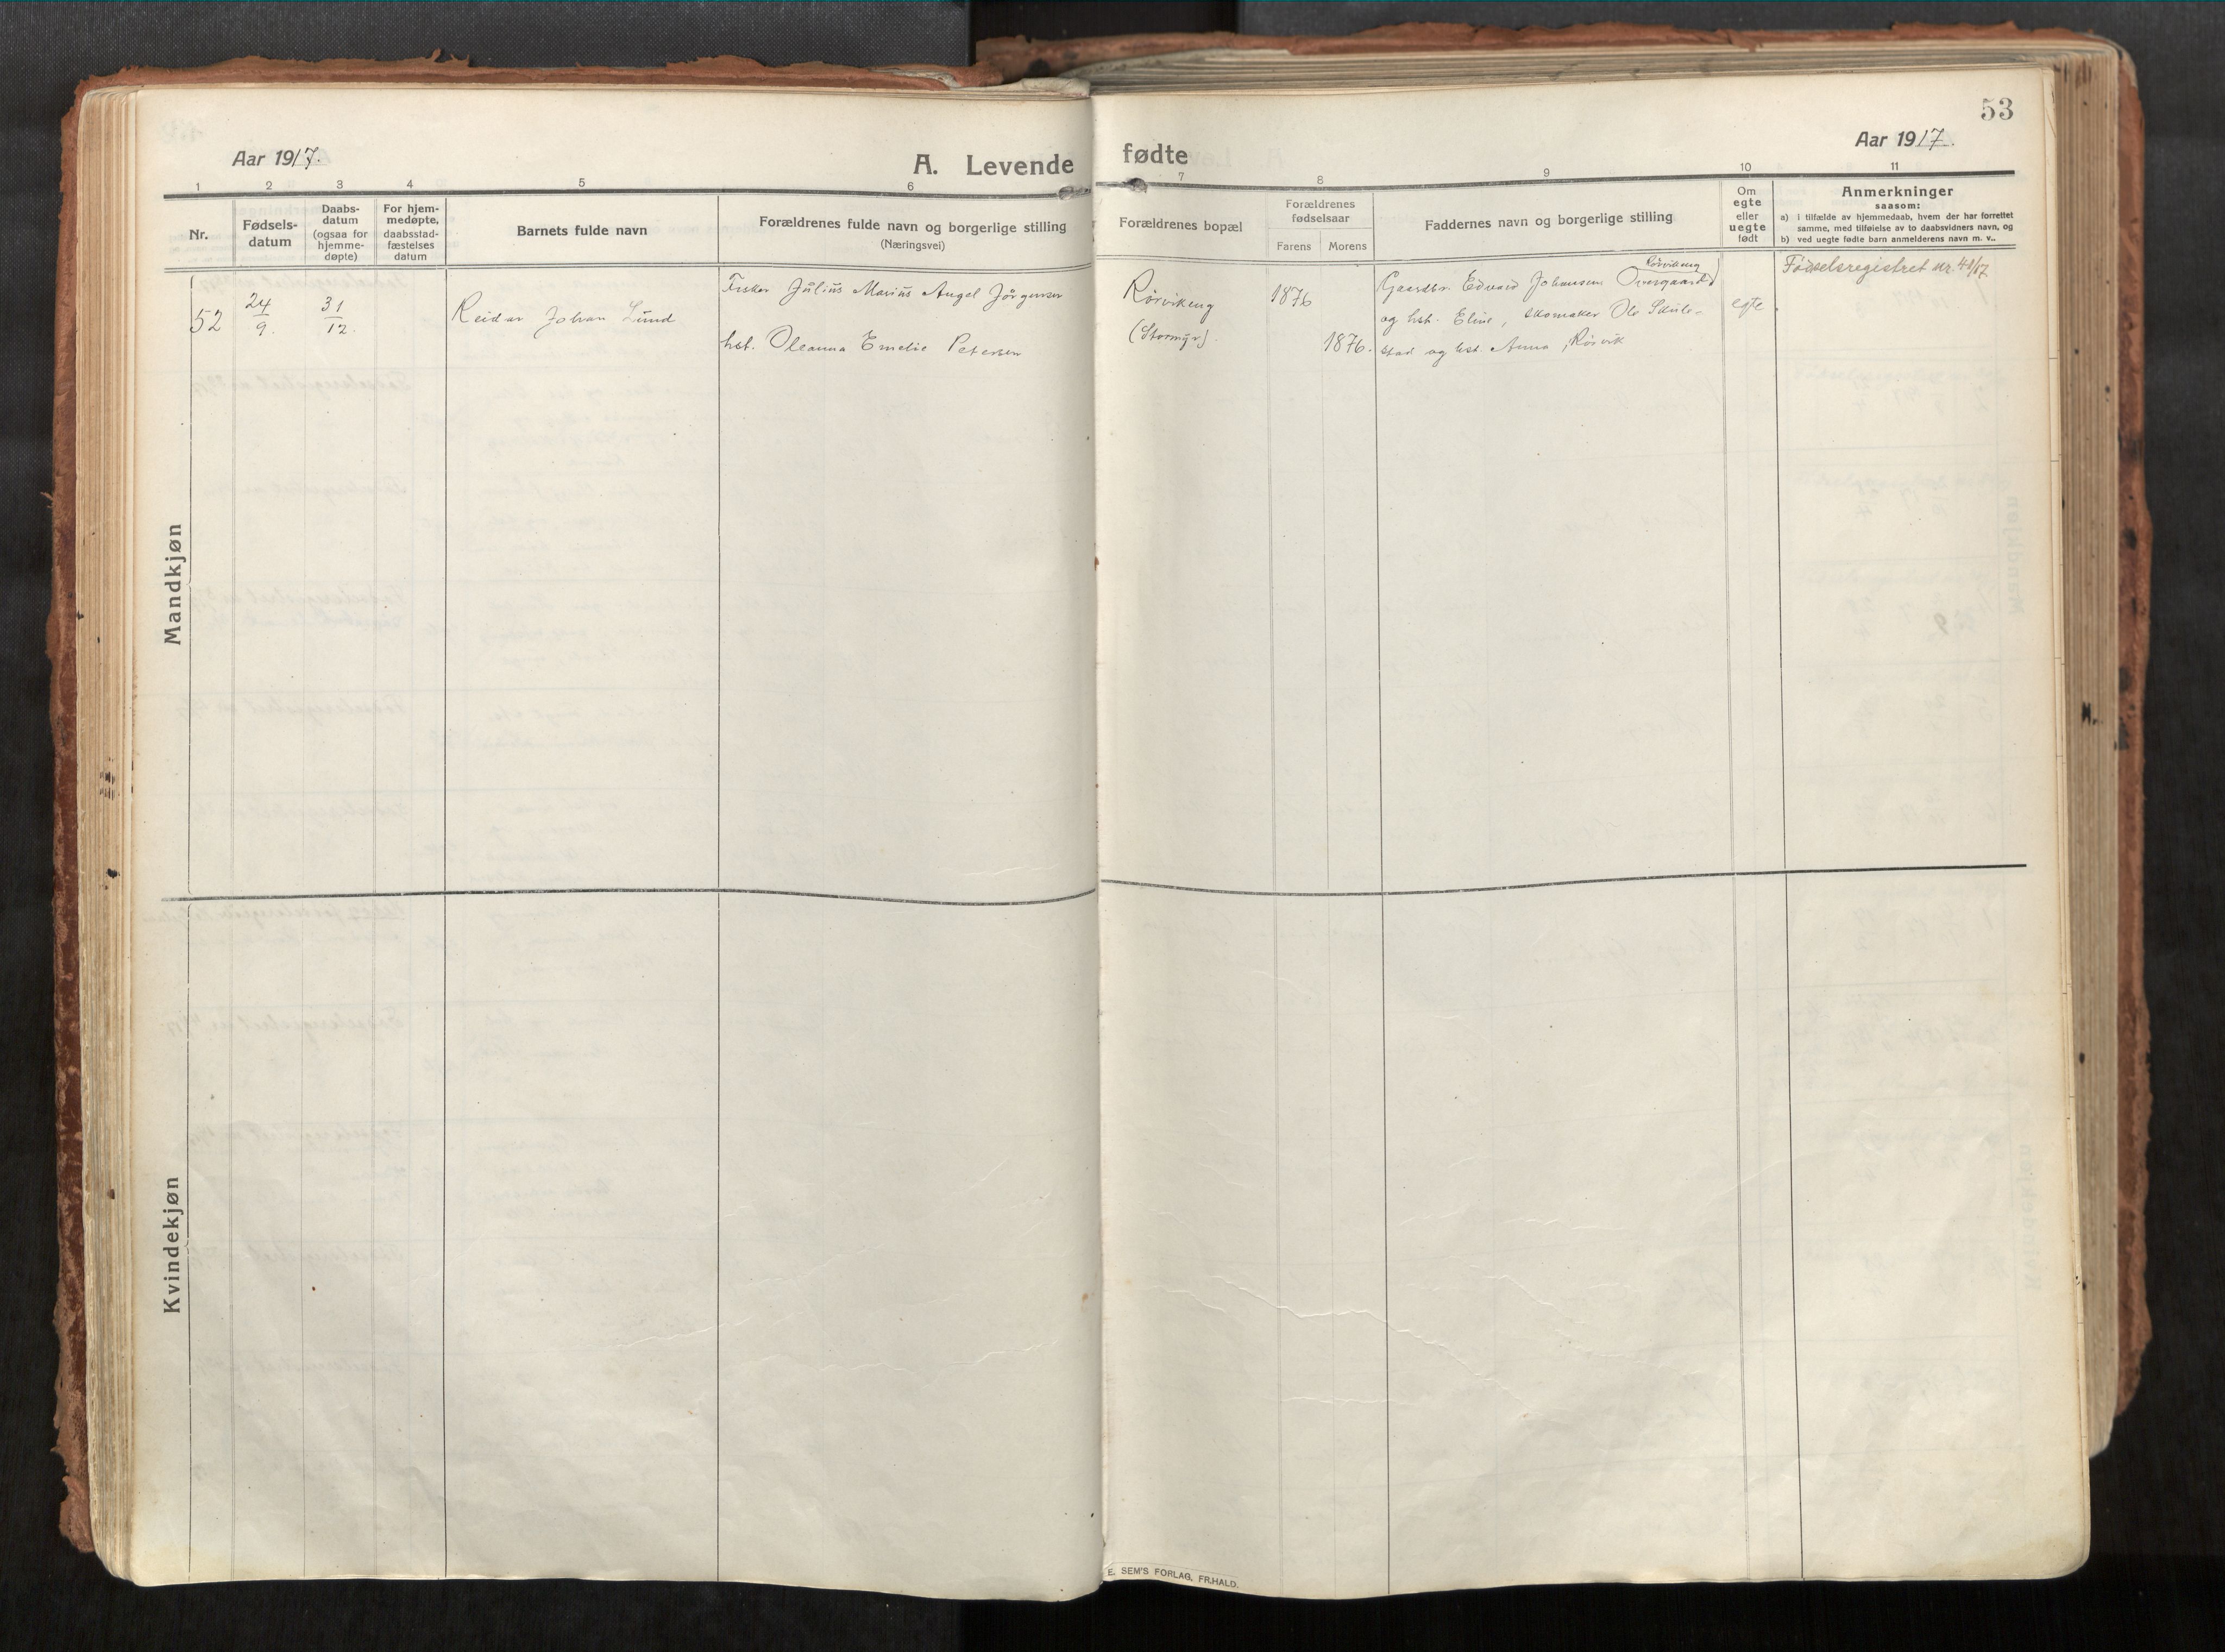 53
Aar 1917.
A. Levende fødte
Aar 1917.
1 2 3 4 5 6 7 8 9 10 11
Nr.
Fødsels-
datum
Daabs-
datum
(ogsaa for
hjemme-
døpte)
For hjem-
medøpte,
daabsstad-
fæstelses
datum
Barnets fulde navn
Forældrenes fulde navn og borgerlige stilling
(Næringsvei)
Forældrenes bopæl
Forældrenes
fødselsaar
Farens Morens
Faddernes navn og borgerlige stilling
Om
egte
eller
uegte
født
Anmerkninger
saasom:
a) i tilfælde av hjemmedaab, hvem der har forrettet
samme, med tilføielse av to daabsvidners navn, og
b) ved uegte fødte barn anmelderens navn m. v..
Mandkjøn
52
24/9.
31/12.
Reidar Johan Lund
Fisker Julius Marius Angel Jørgensen
hst. Oleanna Emelie Petersen
Rörvikeng
(Stormyr).
1876
1876.
Rörvikeng
Gaardbr. Edvard Johansen Overgaard
og hst. Eline, skomaker Ole Skule-
stad og hst. Anna, Rörvik
egte
Fødselsregistret nr. 41/17
Kvindekjøn
E. SEM'S FORLAG, FR.HALD.